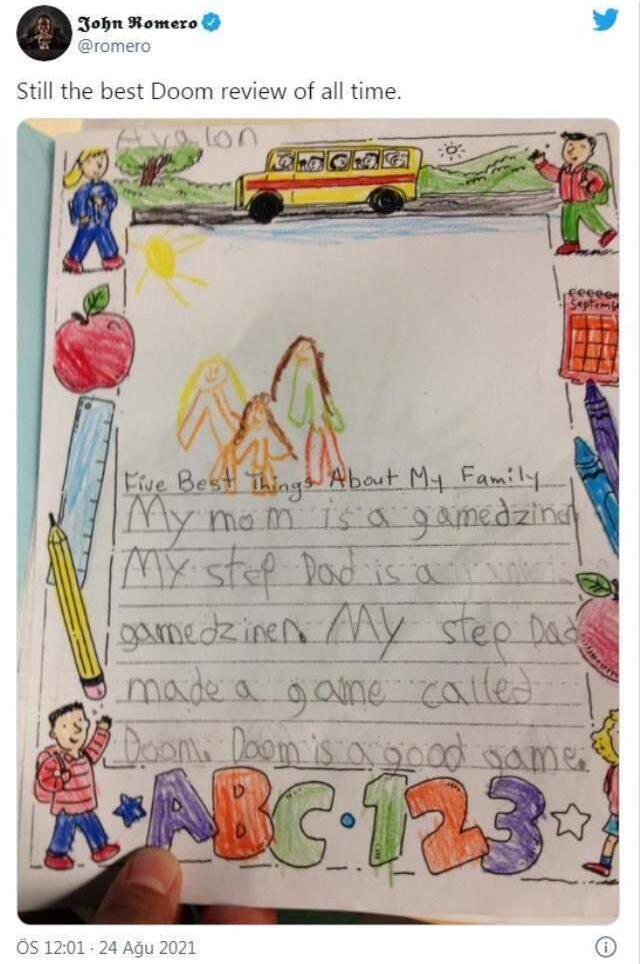 John Romero
@romero
Still the best Doom review of all time.
Avalon
September
Five Best Things About My Family
My mom is a gamedziner
My step Dad is a
gamedziner. My step Dad
made a game called
Doom. Doom is a good game.
ABC·123
ÖS 12:01 · 24 Ağu 2021